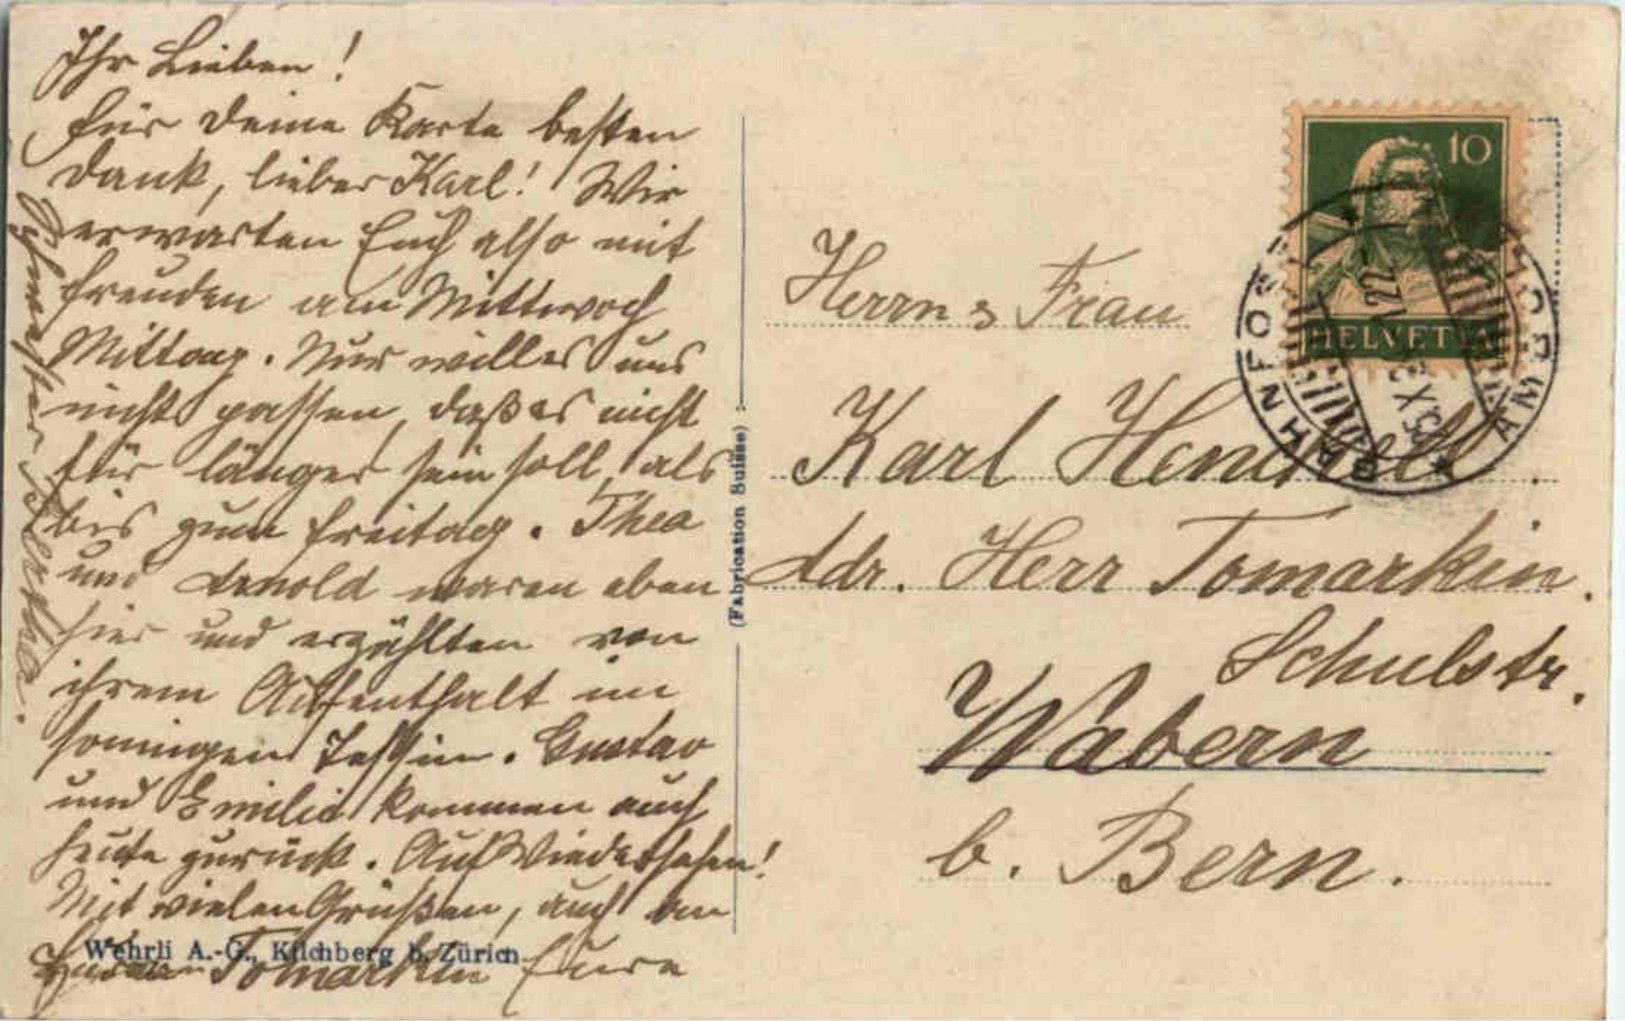 Ihr Lieben!
Für Deine Karte besten
Dank, lieber Karl! Wir
erwarten Euch also mit
Freuden am Mittwoch
Mittag. Nur will es uns
nicht passen, daß es nicht
für länger sein soll, als
bis zum Freitag. Thea
und Arnold waren eben
hier und erzählten von
ihrem Aufenthalt im
sonnigen Tessin. Gustav
und Emilie kommen auch
heute zurück. Auf Wiedersehen!
Mit vielen Grüßen, auch an
Tomarkin Eure
Schwester Bertha.
Wehrli A.-G., Kilchberg b. Zürich
(Fabrication Suisse)
10
HELVETIA
BAHNPOST
Herrn & Frau
Karl Henckell
ddr. Herr Tomarkin.
Schulstr.
Wabern
b. Bern.